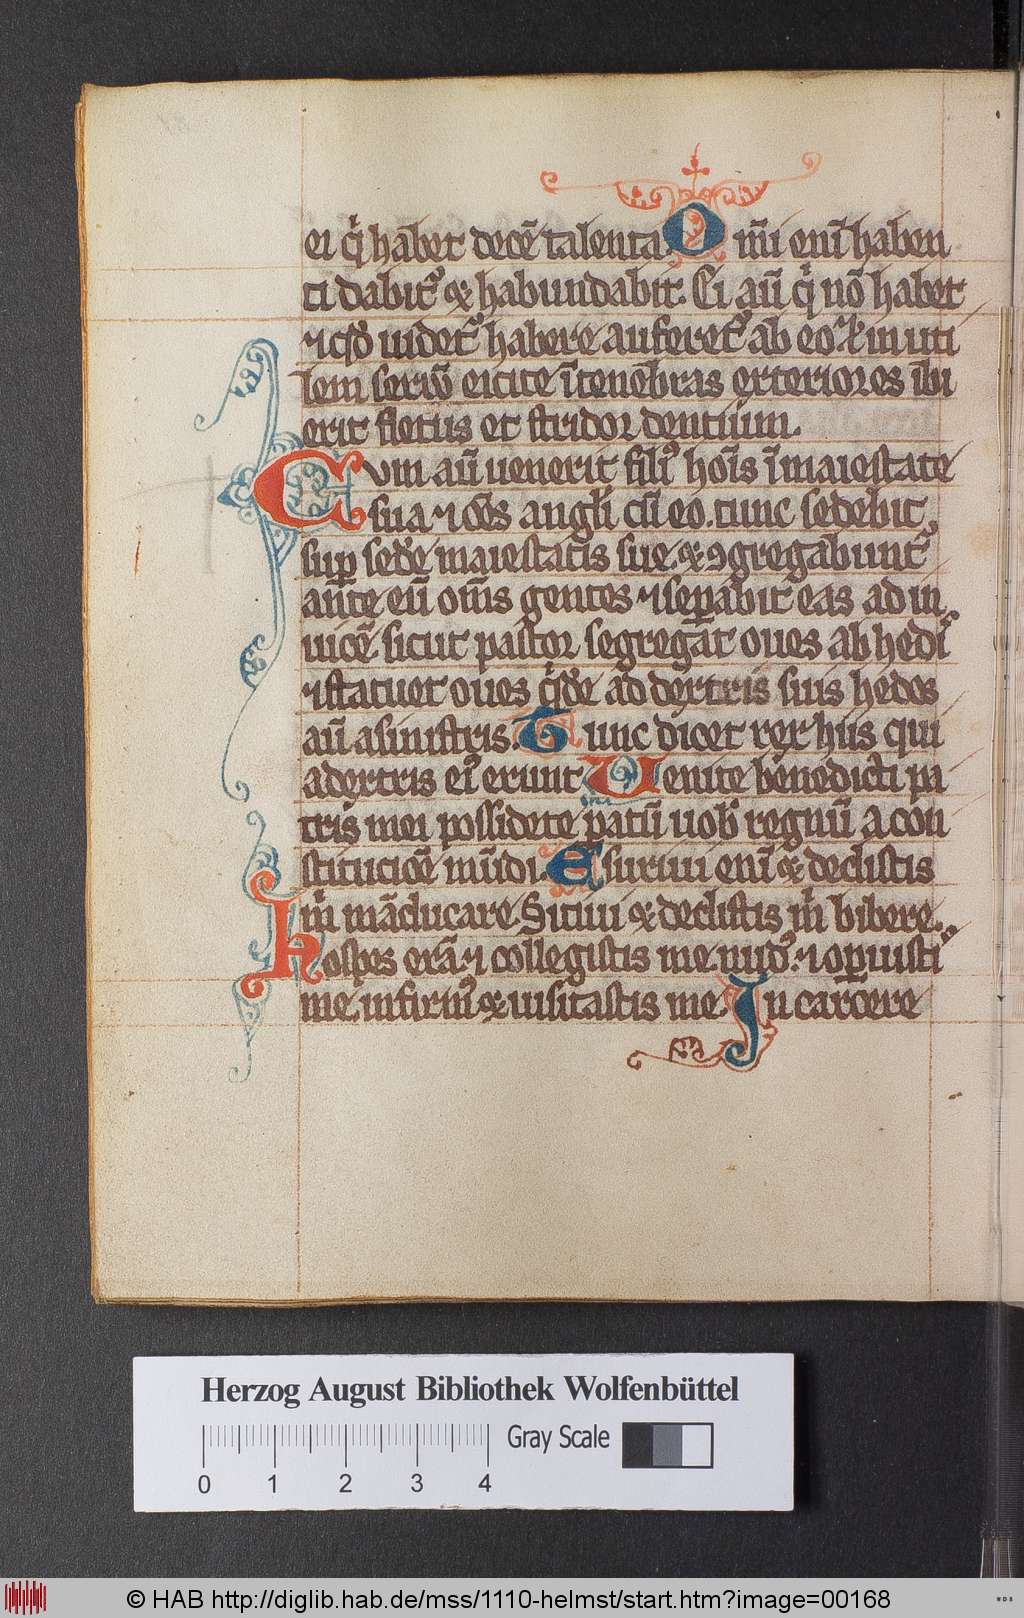 ei qͥ hab̅et dece̅ talenta O mi̅ eni̅ haben
ti dabit᷑ ⁊ habundabit. Ei au̅ qͥ no̅ habet
⁊ qd̅ uidet᷑ habere auferet᷑ ab eo ⁊ inuti
lem seruo̅ eicite i̅ tene̅bras exteriores ibi
erit fletus et stridor dentium.
Cum au̅ uenerit fili᷒ ho̅is i̅ maiestate
sua ⁊ o̅s angl̅i cu̅ eo. tunc sedebit
sup̅ sede̅ maiestatis sue. ⁊ ꝯgregabunt᷑
an̅te eu̅ om̅s gentes ⁊ sep̅abit eas ad in
uice̅ sicut pastor segregat oues ab hedis
⁊ statuet oues qͥde̅ ad dextris suis hedos
au̅ a sinistris. Tunc dicet rex hiis qui
a dextris ei᷒ erunt Venite benedicti pa
tris mei possidete patu̅ uob̅ regnu̅ a con
stitucio̅e mu̅di. Esuriui eni̅ ⁊ dedistis
mͥ ma̅ducare. Sitiui ⁊ dedistis mͥ bibere.
hospes era̅ ⁊ collegistis me. nud᷒ ⁊ op̅uisti
me. infirm᷒ ⁊ uisitastis me. In carcere
Herzog August Bibliothek Wolfenbüttel
Gray Scale
0 1 2 3 4
© HAB http://diglib.hab.de/mss/1110-helmst/start.htm?image=00168